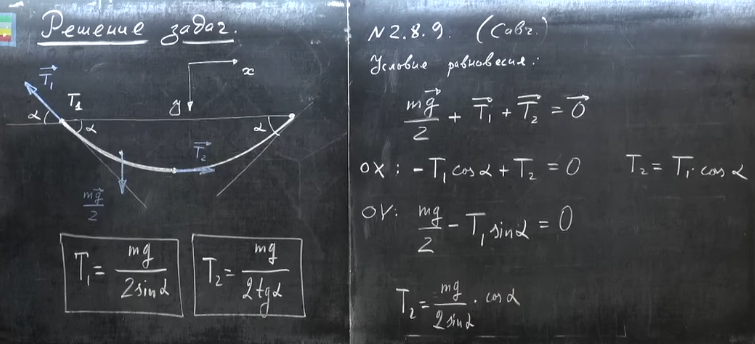 Решение задач.
T⃗₁
T₁
x
y
α
α
α
T⃗₂
mg⃗/2
T₁ = mg/(2sinα)
T₂ = mg/(2tgα)
N2.8.9. (Савч.)
Условие равновесия:
mg⃗/2 + T⃗₁ + T⃗₂ = 0⃗
OX: -T₁cosα + T₂ = 0
T₂ = T₁·cosα
OY: mg/2 - T₁sinα = 0
T₂ = mg/(2sinα) · cosα